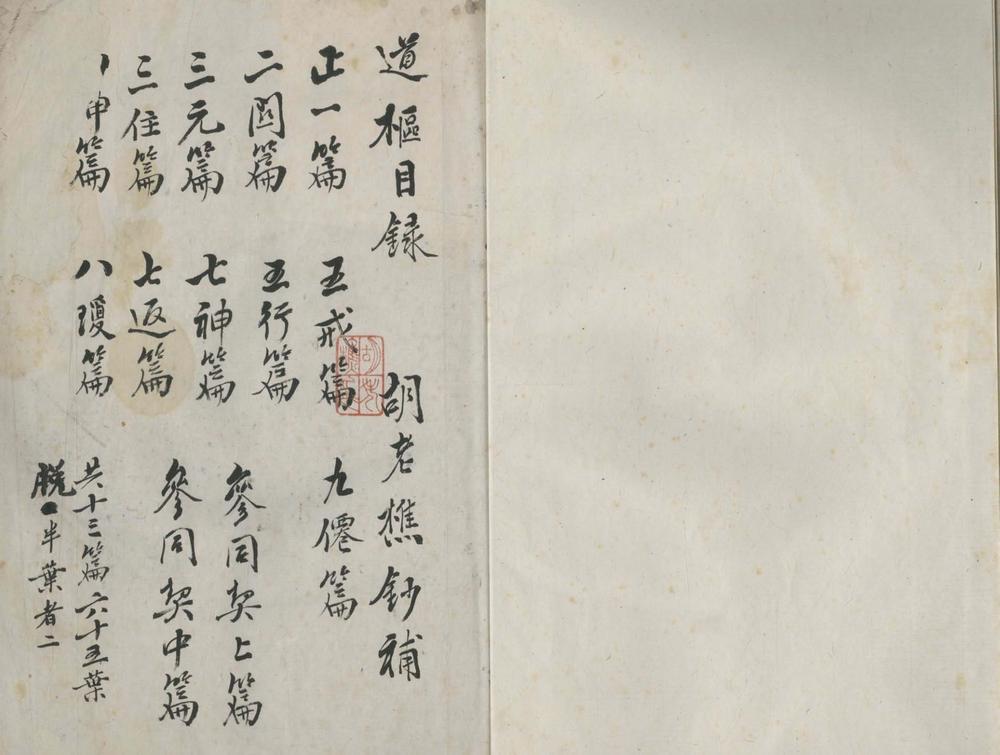 道樞目録　胡老樵鈔補
正一篇
二関篇
三元篇
三住篇
申篇
五戒篇
五行篇
七神篇
七返篇
八瓊篇
九僊篇
參同契上篇
參同契中篇
共十三篇六十五葉
脱半葉者二